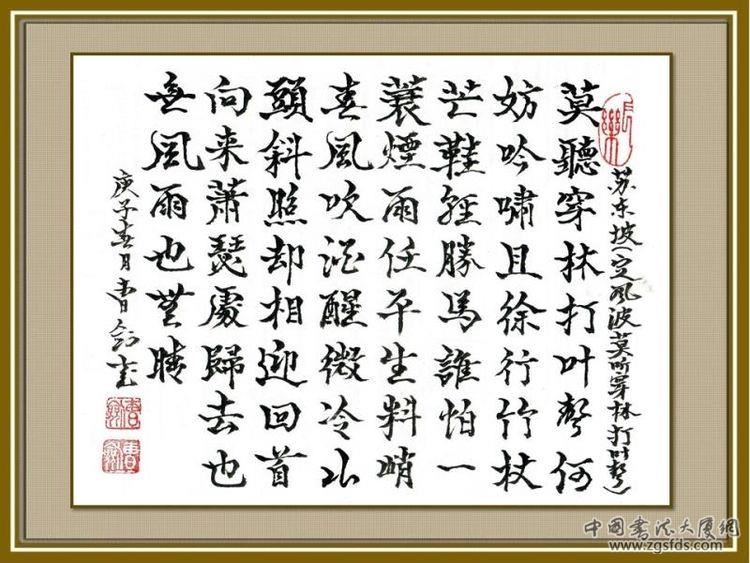 苏东坡(定风波莫听穿林打叶声)
莫聽穿林打叶聲何
妨吟嘯且徐行竹杖
芒鞋經勝馬誰怕一
蓑煙雨任平生料峭
春風吹酒醒微冷山
頭斜照却相迎回首
向来蕭瑟處歸去也
無風雨也無晴
庚子春月曹剑书
中國書法大廈網
www.zgsfds.com